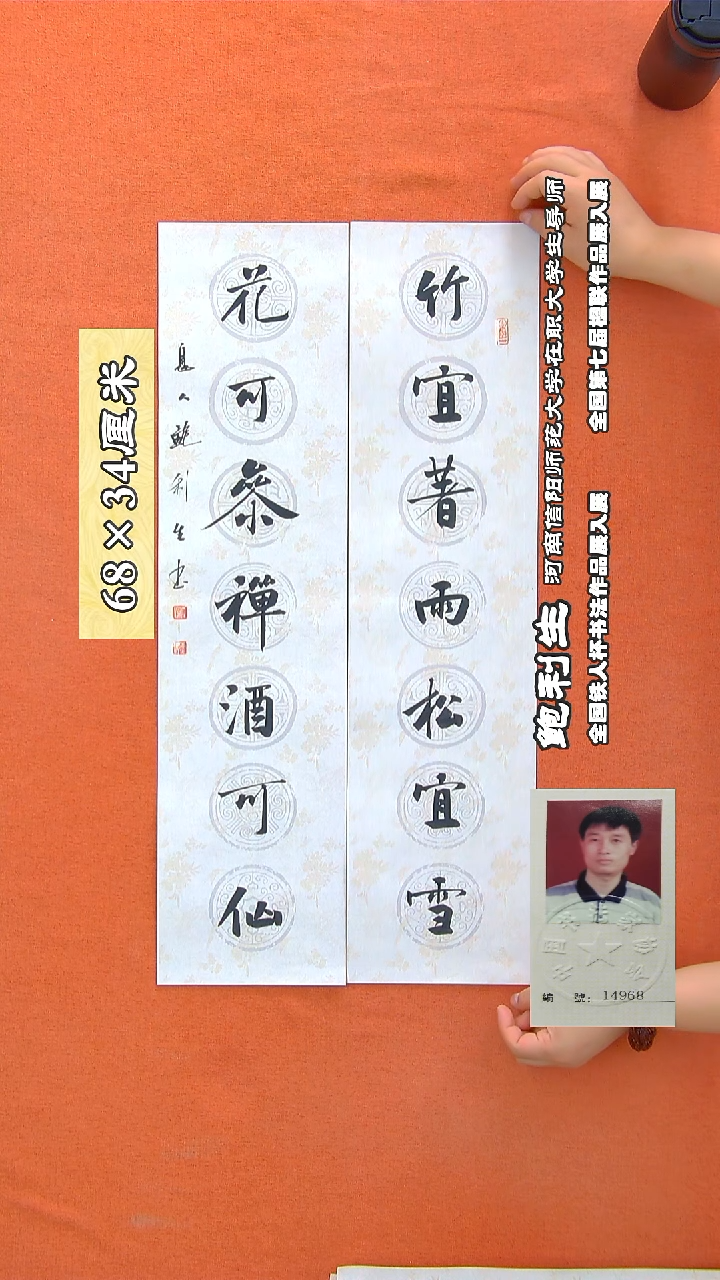 竹宜著雨松宜雪
花可參禪酒可仙
息人鮑利生书
68×34厘米
鲍利生 河南信阳师范大学在职大学生导师
全国铁人杯书法作品展入展 全国第七届楹联作品展入展
編 號: 14968